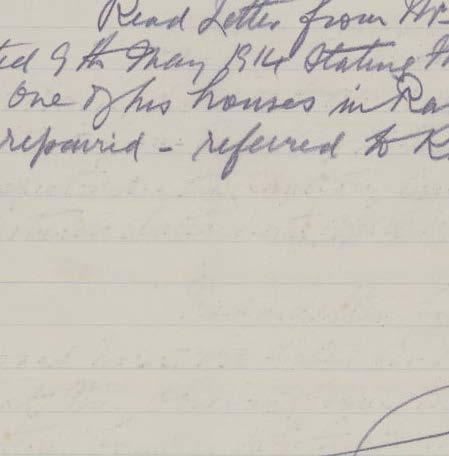 Read Letter from Mr
ted 9th May 1914 stating th
one of his houses in Ra
repaired - referred to R